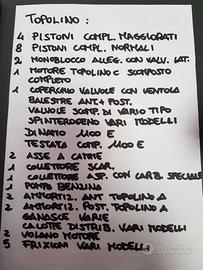 TOPOLINO:
4 PISTONI COMPL. MAGGIORATI
8 PISTONI COMPL. NORMALI
2 MONOBLOCCO ALLEG. CON VALV. LAT.
1 MOTORE TOPOLINO C SCOMPOSTO
COMPLETO
1 COPERCHIO VALVOLE CON VENTOLA
BALESTRE ANT + POST.
VALVOLE SCOMP. DI VARIO TIPO
SPINTEROGENO VARI MODELLI
DINAMO 1100 E
TESTATA COMP. 1100 E
2 ASSE A CAMME
1 COLLETTORE SCAR.
1 COLLETTORE ASP. CON CARB. SPECIALE
1 POMPA BENZINA
2 AMMORTIZ. ANT TOPOLINO A
2 AMMORTIZ. POST. TOPOLINO A
GANASCE VARIE
CALOTTE DISTRIB. VARI MODELLI
2 VOLANO MOTORE
5 FRIZIONI VARI MODELLI
Subito